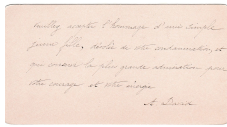 veuillez accepter l'hommage d'une simple
jeune fille, désolée de votre condamnation et
qui conserve la plus grande admiration pour
votre courage et votre énergie
A. David